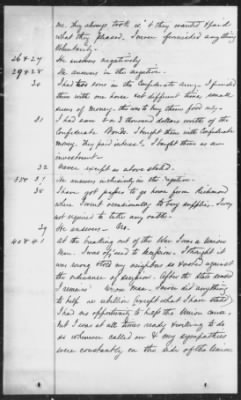 me. They always took it & they wanted & paid
what they pleased. I never furnished anything
voluntarily.
26 & 27 He answers negatively
29 & 28 He answers in the negative.
30 I had two sons in the Confederate army. I furnished
them with one horse and different times, small
sums of money. This was to buy them food only.
31 I had some 2 or 3 thousand dollars worth of the
Confederate Bonds. I bought them with Confederate
money. They paid interest & I bought them as an
investment.
32 Never except as above stated.
He answers in the negative.
38 I have got passes to go from Richmond
when I went occasionally to buy supplies. I was
not required to take any oath.
39 He answers No.
40 & 41 At the breaking out of the War I was a Union
man. I was opposed to Secession. I thought it
was wrong. I and my neighbors voted against
the ordinance of Secession. After the State seceded
I remained Union man. I never did anything
to help the rebellion except what I have stated
I had no opportunity to help the Union cause,
but I was at all times ready & willing to do
so whenever called on & my sympathies
were constantly on the side of the Union